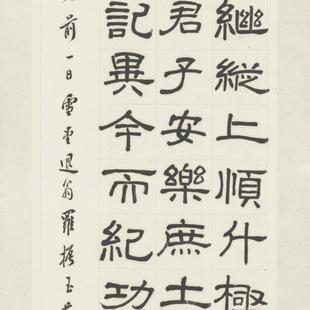 繼縱上順什極
君子安樂庶士
記異今而紀功
前一日雪堂退翁羅振玉